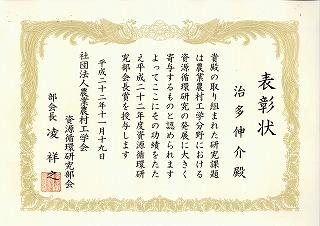 表彰状
治多伸介殿
貴殿の取り組まれた研究課題
は農業農村工学分野における
資源循環研究の発展に大きく
寄与するものと認められます
よってここにその功績をたた
え平成二十二年度資源循環研
究部会長賞を授与します
平成二十二年十一月十九日
社団法人農業農村工学会
資源循環研究部会
部会長 凌祥之